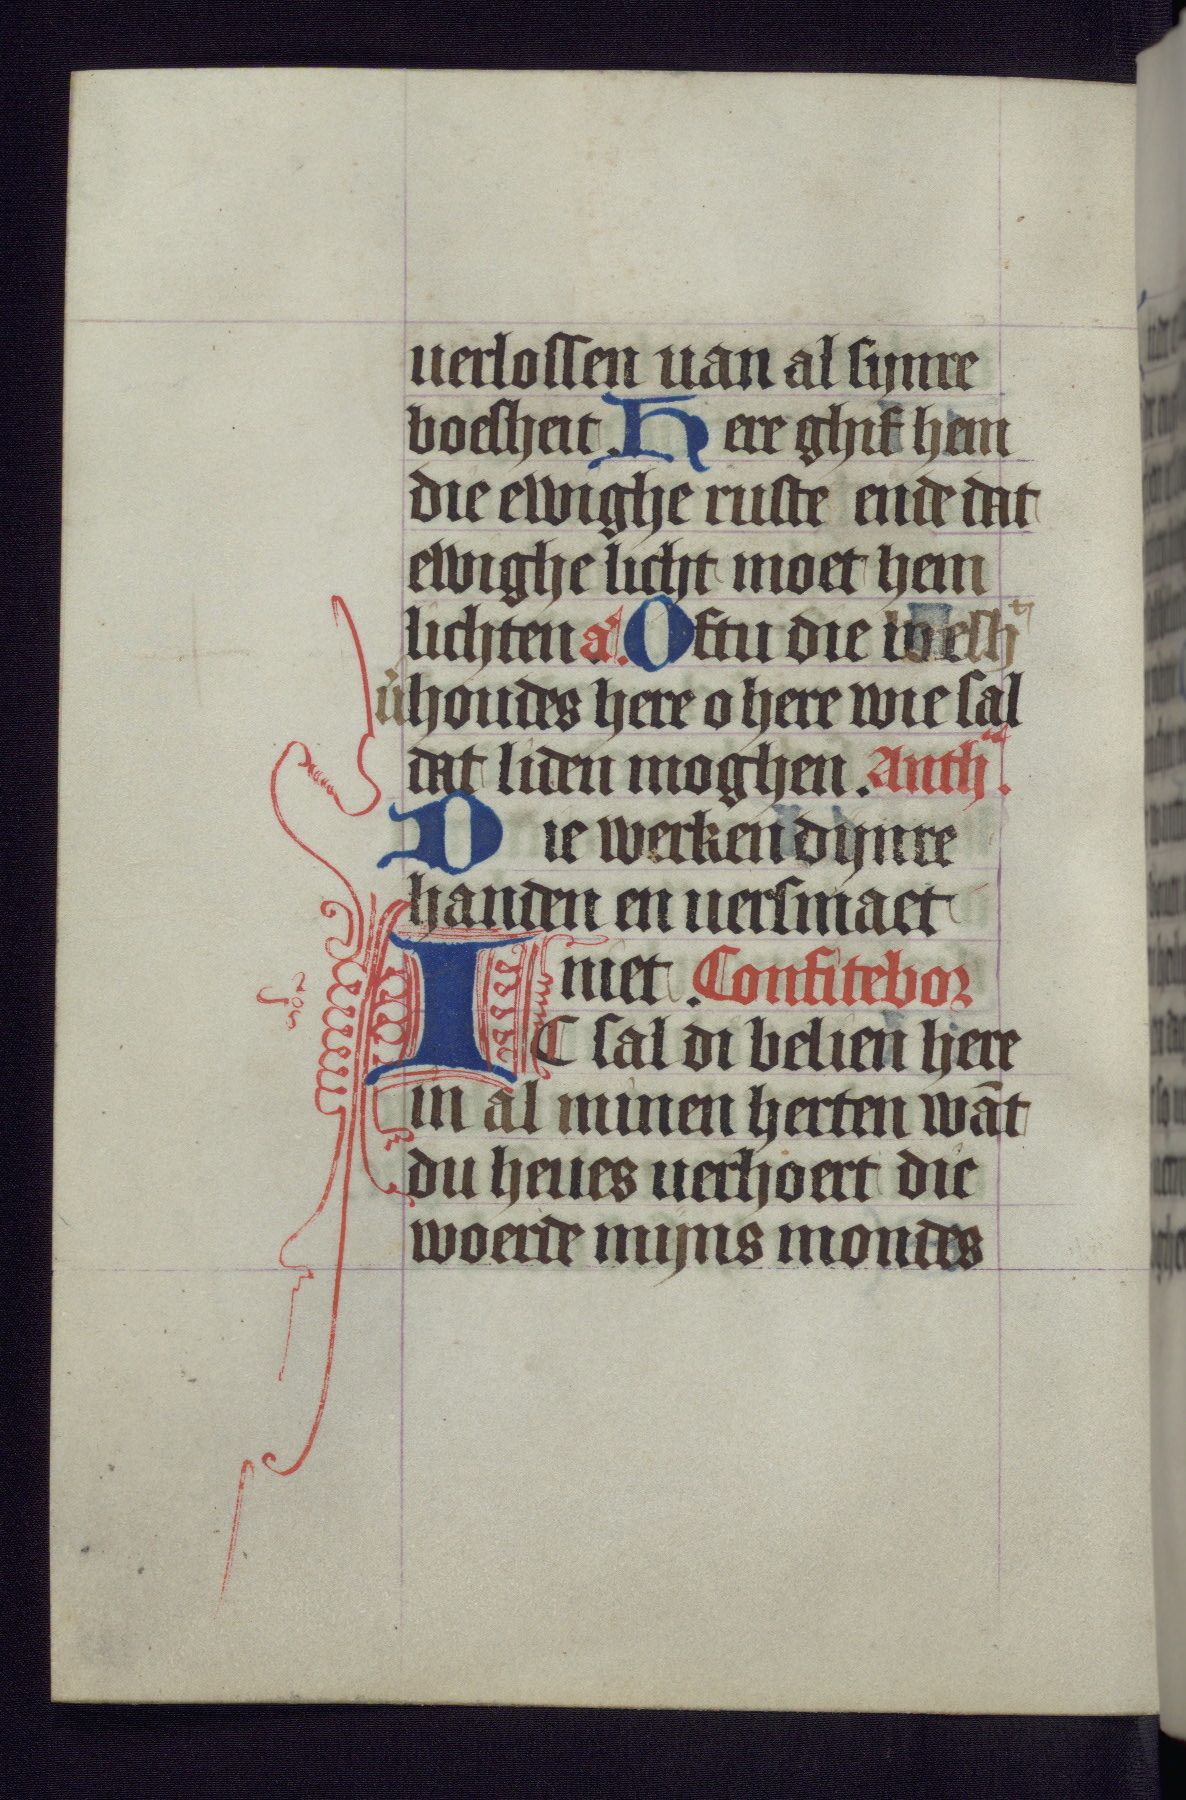 uerlossen uan al sijnre
boesheit. Here ghif hem
die ewighe ruste ende dat
ewighe licht moet hem
lichten a. Oftu die
houdes here o here wie sal
dat liden moghen. Anth
Die werken dijnre
handen en uersmaet
niet. Confitebor
IC sal di belien here
in al minen herten wāt
du heues uerhoert die
woerde mijns mondes